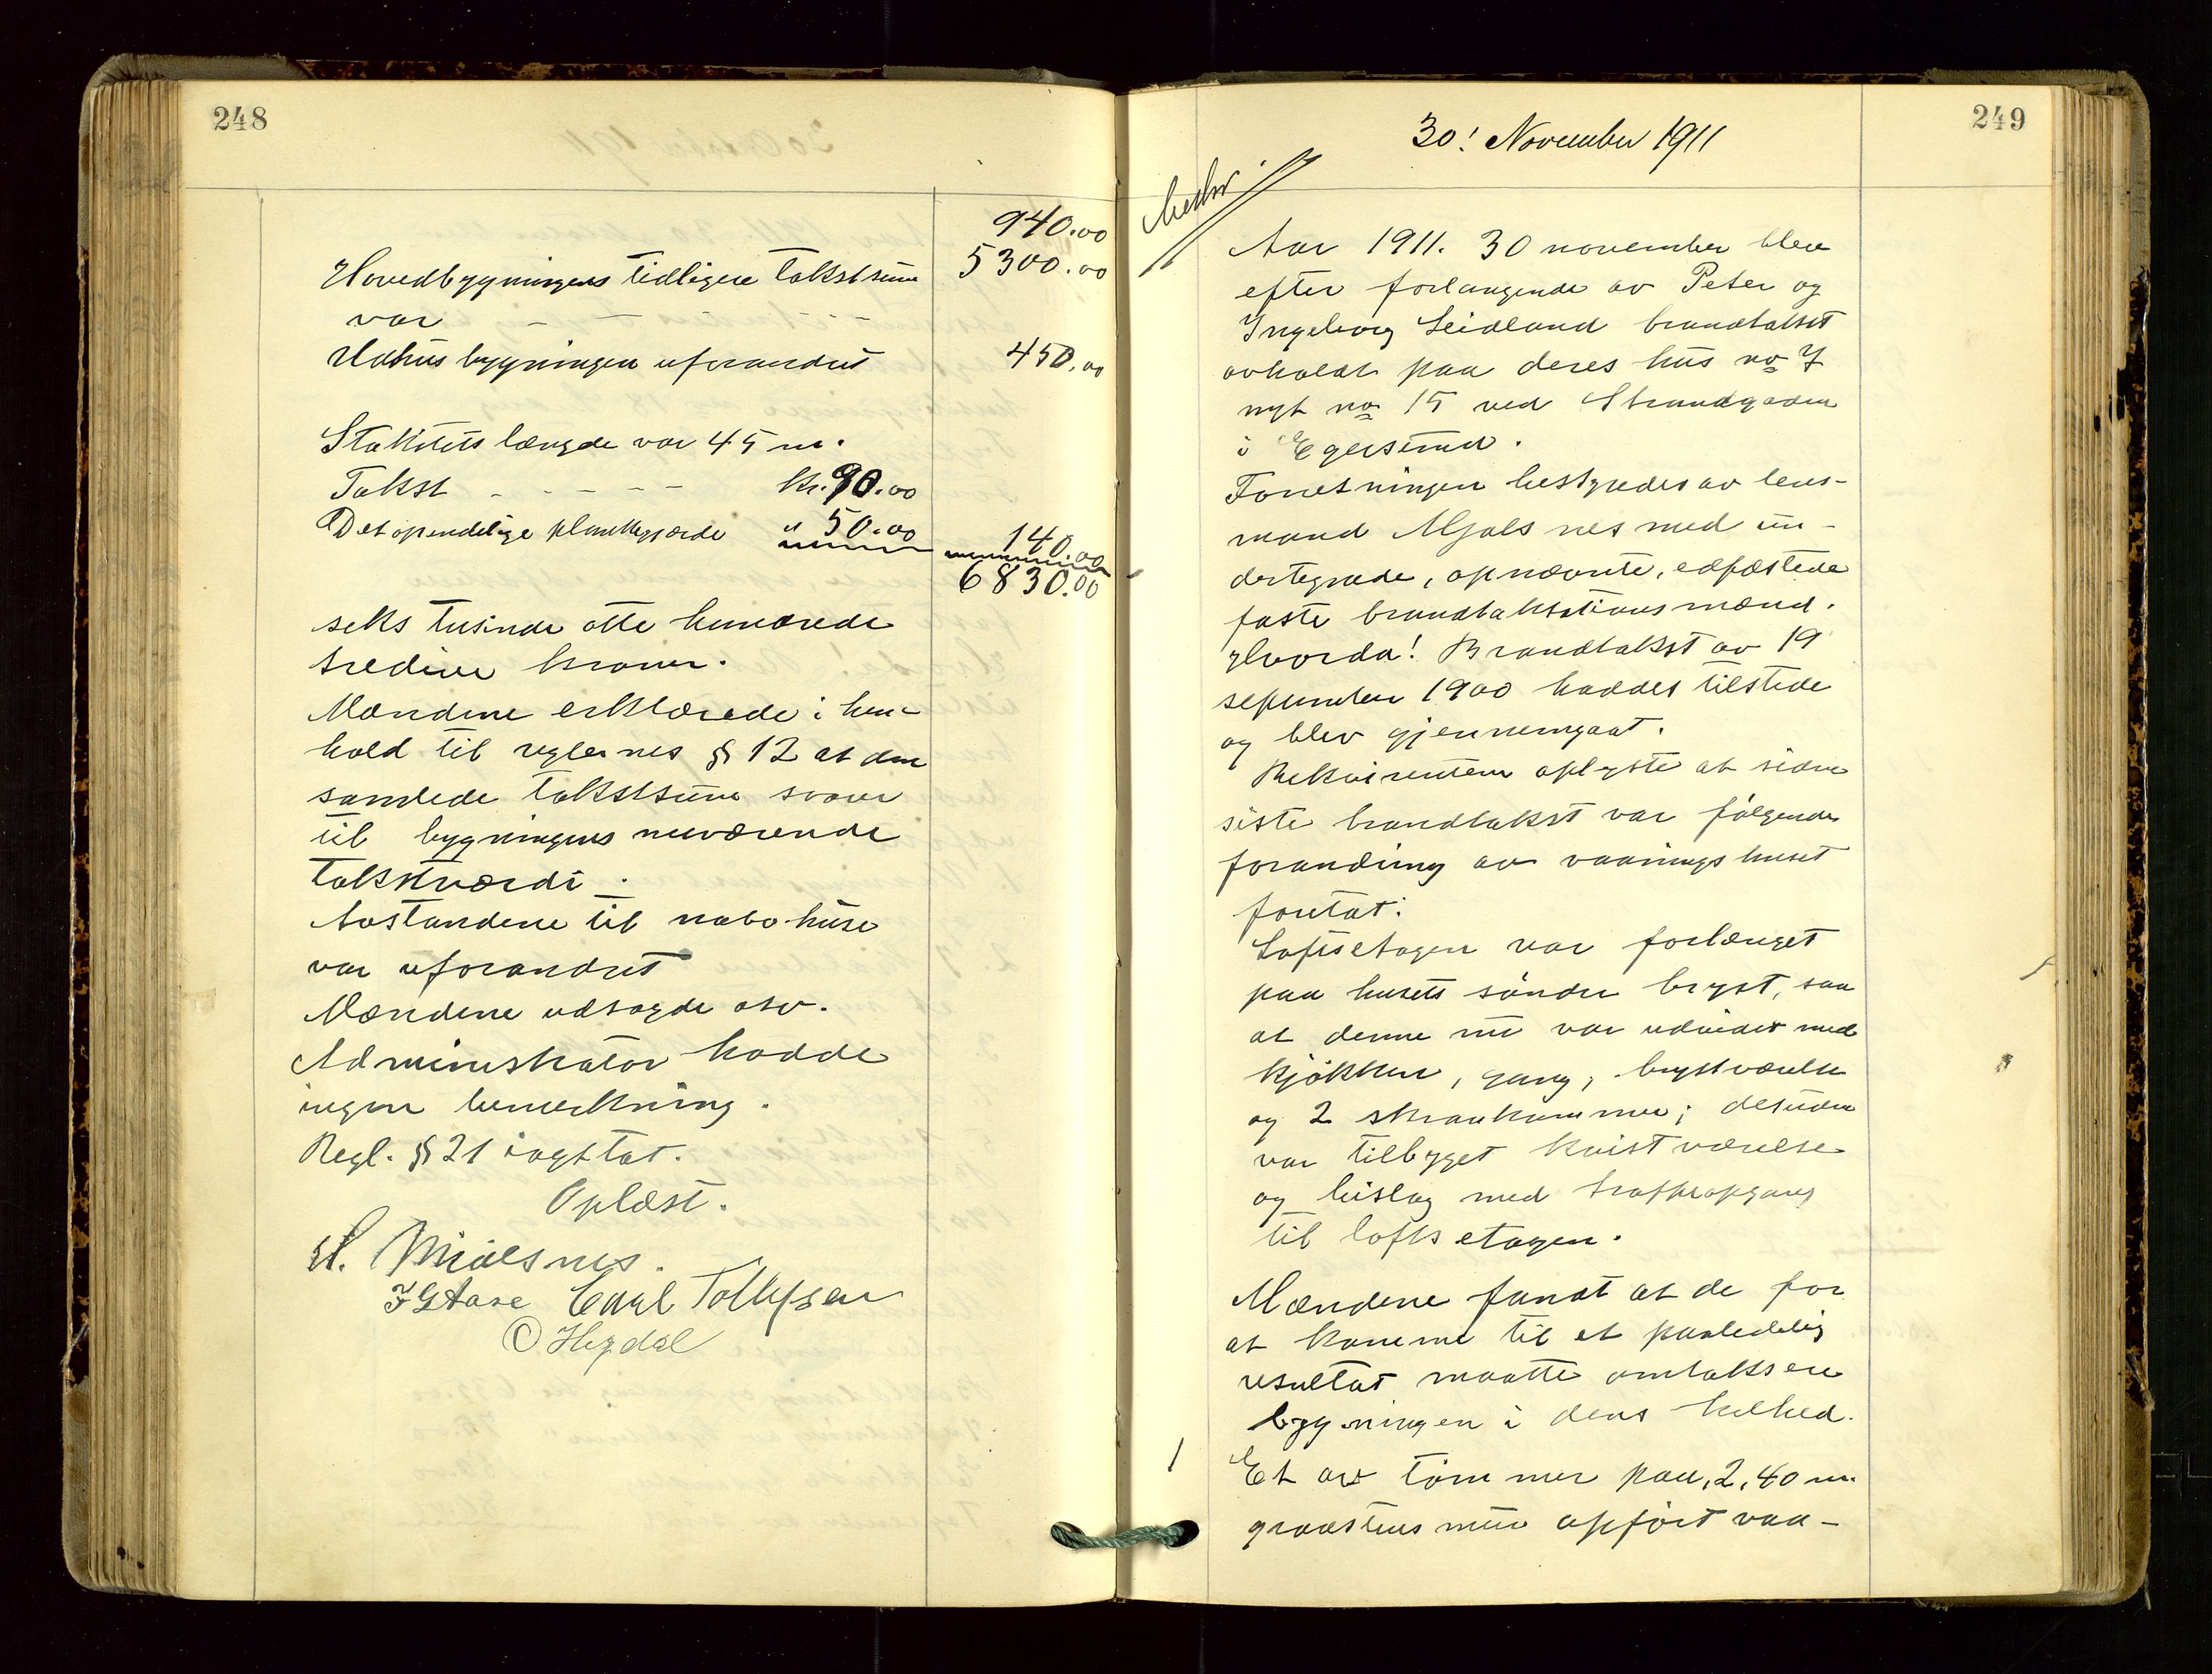 248
940.00
Hovedbygningens tidligere takstsum 5300.00
var - - - -
Uthusbygningen uforandret 450.00
Stakitets længde var 45 m.
Takst - - - - - kr. 90.00
Det opendelige plankegjærde " 50.00 140.00
6830.00
seks tusinde otte hundrede
tredive kroner.
Mændene erklærede i hen-
hold til reglernes § 12 at den
samlede takstsum svarer
til bygningens nuværende
takstværdi.
Avstandene til nabohuse
var uforandret
Mændene udsagde osv.
Administrator hadde
ingen bemerkning.
Regl. § 21 iagttat.
Oplæst.
H. Mjølsnes.
F G Aase Carl Tollefsen
O Hegdal
249
30! November 1911
Aar 1911. 30 november blev
efter forlangende av Peter og
Ingeborg Leidland brandtakst
avholdt paa deres hus no 7
nyt no 15 ved Strandgaden
i Egersund.
Forretningen bestyredes av lens-
mand Mjølsnes med un-
dertegnede, opnævnte, edfæstede
faste brandtakstationsmænd.
Hvorda! Brandtakst av 19
september 1900 haddes tilstede
og blev gjennemgaat.
Rekvirenten oplyste at siden
siste brandtakst var følgende
forandring av vaaningshuset
foretat:
Loftsetagen var forlænget
paa husets søndre bryst, saa
at denne nu var udvidet med
kjøkken, gang, brystværelse
og 2 skraakammer; desuden
var tilbygget kvistværelse
og bislag med trappeopgang
til loftsetagen.
Mændene fandt at de for
at komme til et paalidelig
resultat maatte omtaksere
bygningen i dens helhed.
1 Et av tømmer paa 2,40 m.
graastens mur opført vaa-